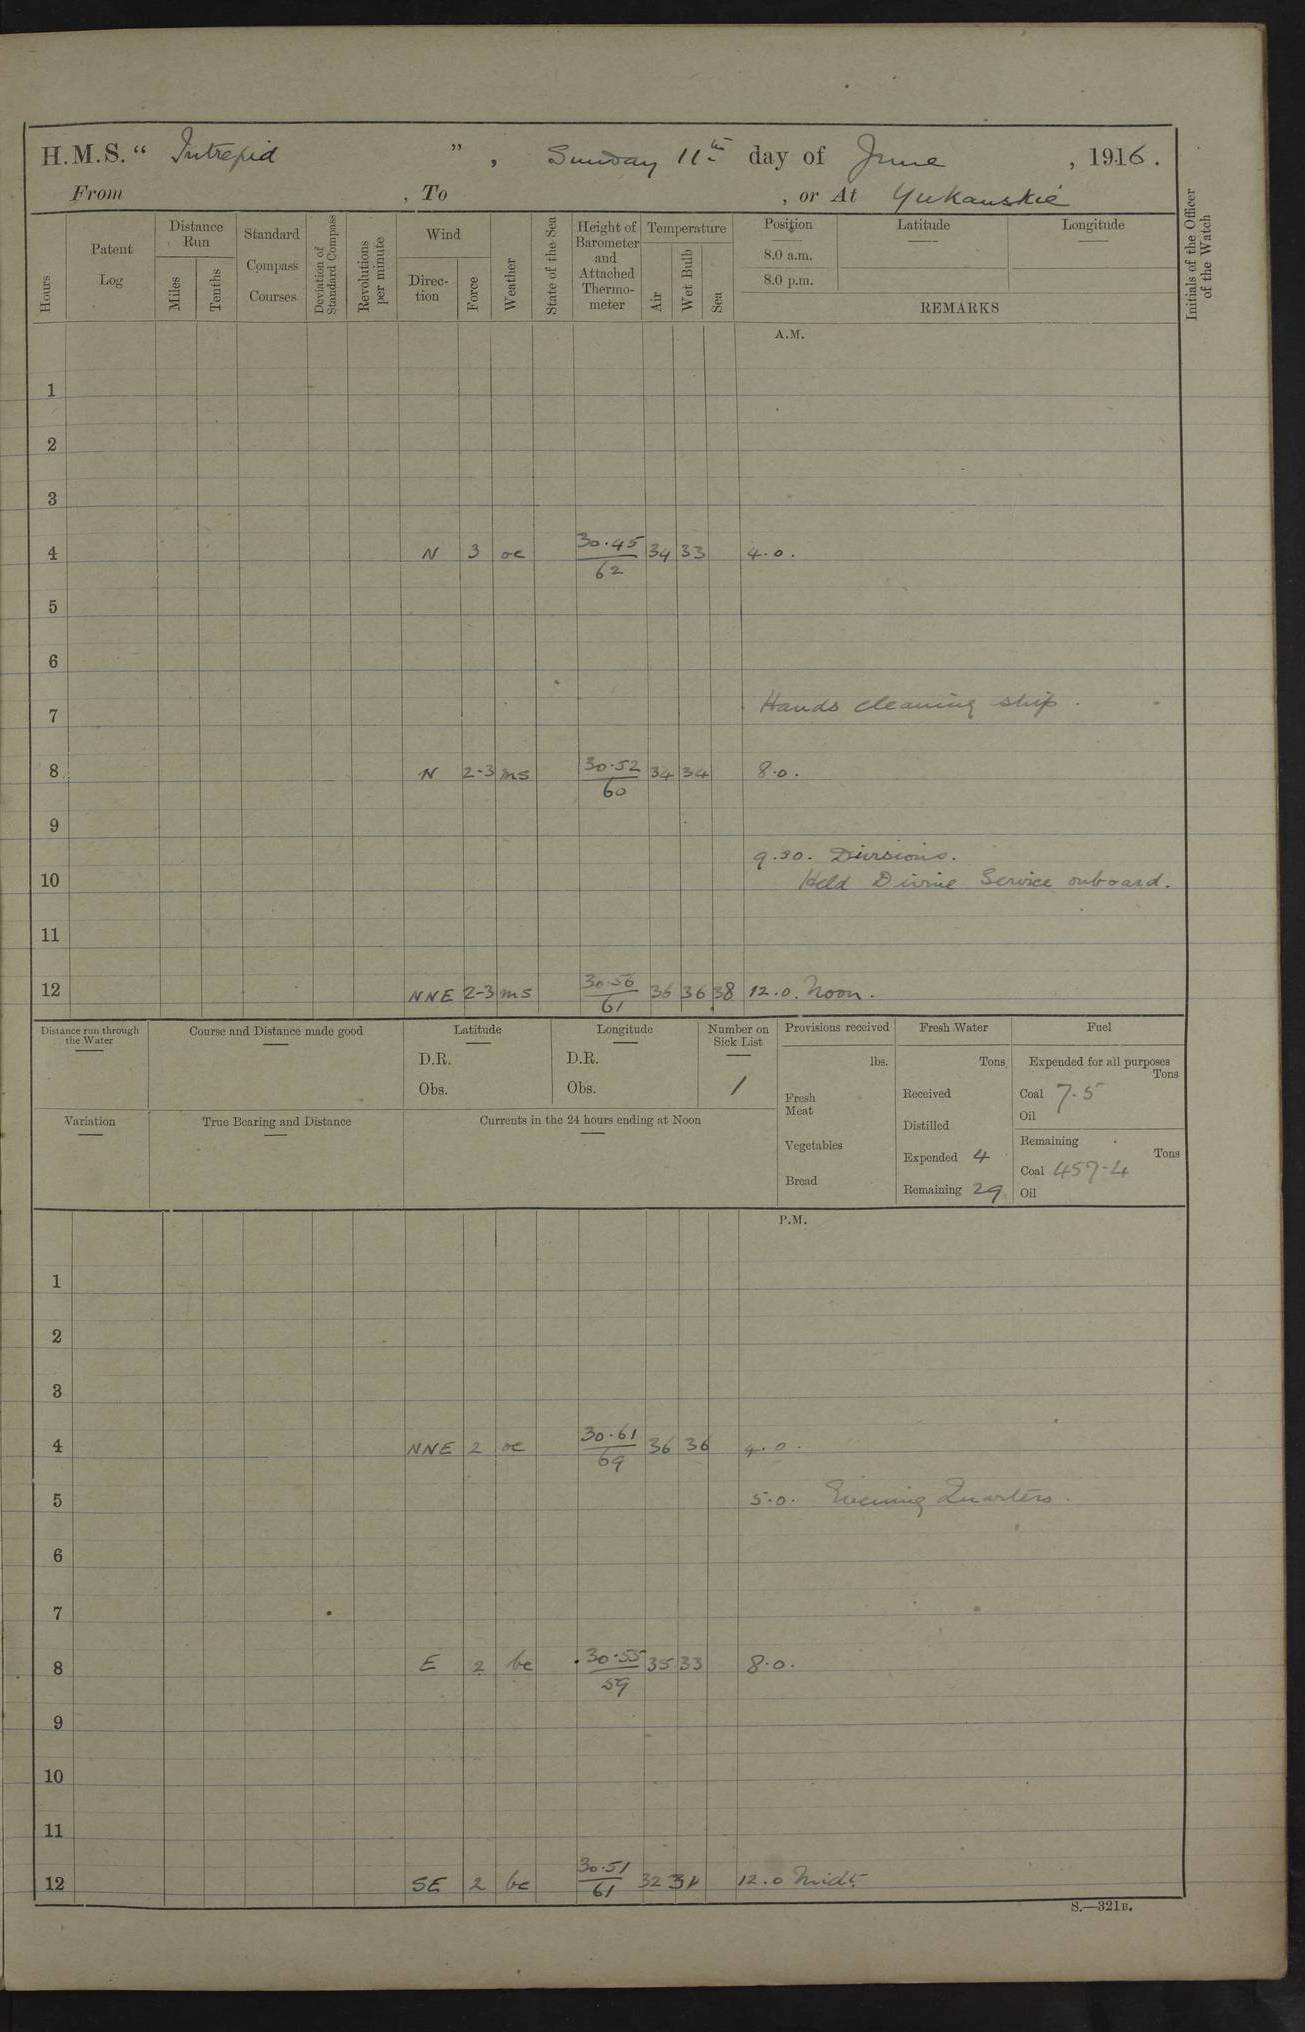 H.M.S. “ Intrepid ” , Sunday 11th day of June , 1916 .
From , To , or At Yukanskie
Hours
Patent Log
Distance Run
Miles
Tenths
Standard Compass Courses
Deviation of Standard Compass
Revolutions per minute
Wind
Direc-tion
Force
Weather
State of the Sea
Height of Barometer and Attached Thermo-meter
Temperature
Air
Wet Bulb
Sea
Position
8.0 a.m.
8.0 p.m.
Latitude
Longitude
REMARKS
Initials of the Officer of the Watch
A.M.
1
2
3
4 N 3 oc 30.45 34 33 4.0.
62
5
6
7 Hands cleaning ship.
8 N 2-3 ms 30.52 34 34 8.0.
60
9
9.30. Divisions.
10 Held Divine Service onboard.
11
12 NNE 2-3 ms 30.56 36 36 38 12.0. Noon.
61
Distance run through the Water
Course and Distance made good
Latitude
D.R.
Obs.
Longitude
D.R.
Obs.
Number on Sick List
1
Provisions received
lbs.
Fresh Meat
Vegetables
Bread
Fresh Water
Tons
Received
Distilled
Expended 4
Remaining 29
Fuel
Expended for all purposes
Tons
Coal 7.5
Oil
Remaining
Tons
Coal 457.4
Oil
Variation
True Bearing and Distance
Currents in the 24 hours ending at Noon
P.M.
1
2
3
4 NNE 2 oc 30.61 36 36 4.0.
69
5 5.0. Evening Quarters.
6
7
8 E 2 bc 30.55 35 33 8.0.
59
9
10
11
12 SE 2 bc 30.51 32 31 12.0 Midt.
61
S.—321B.